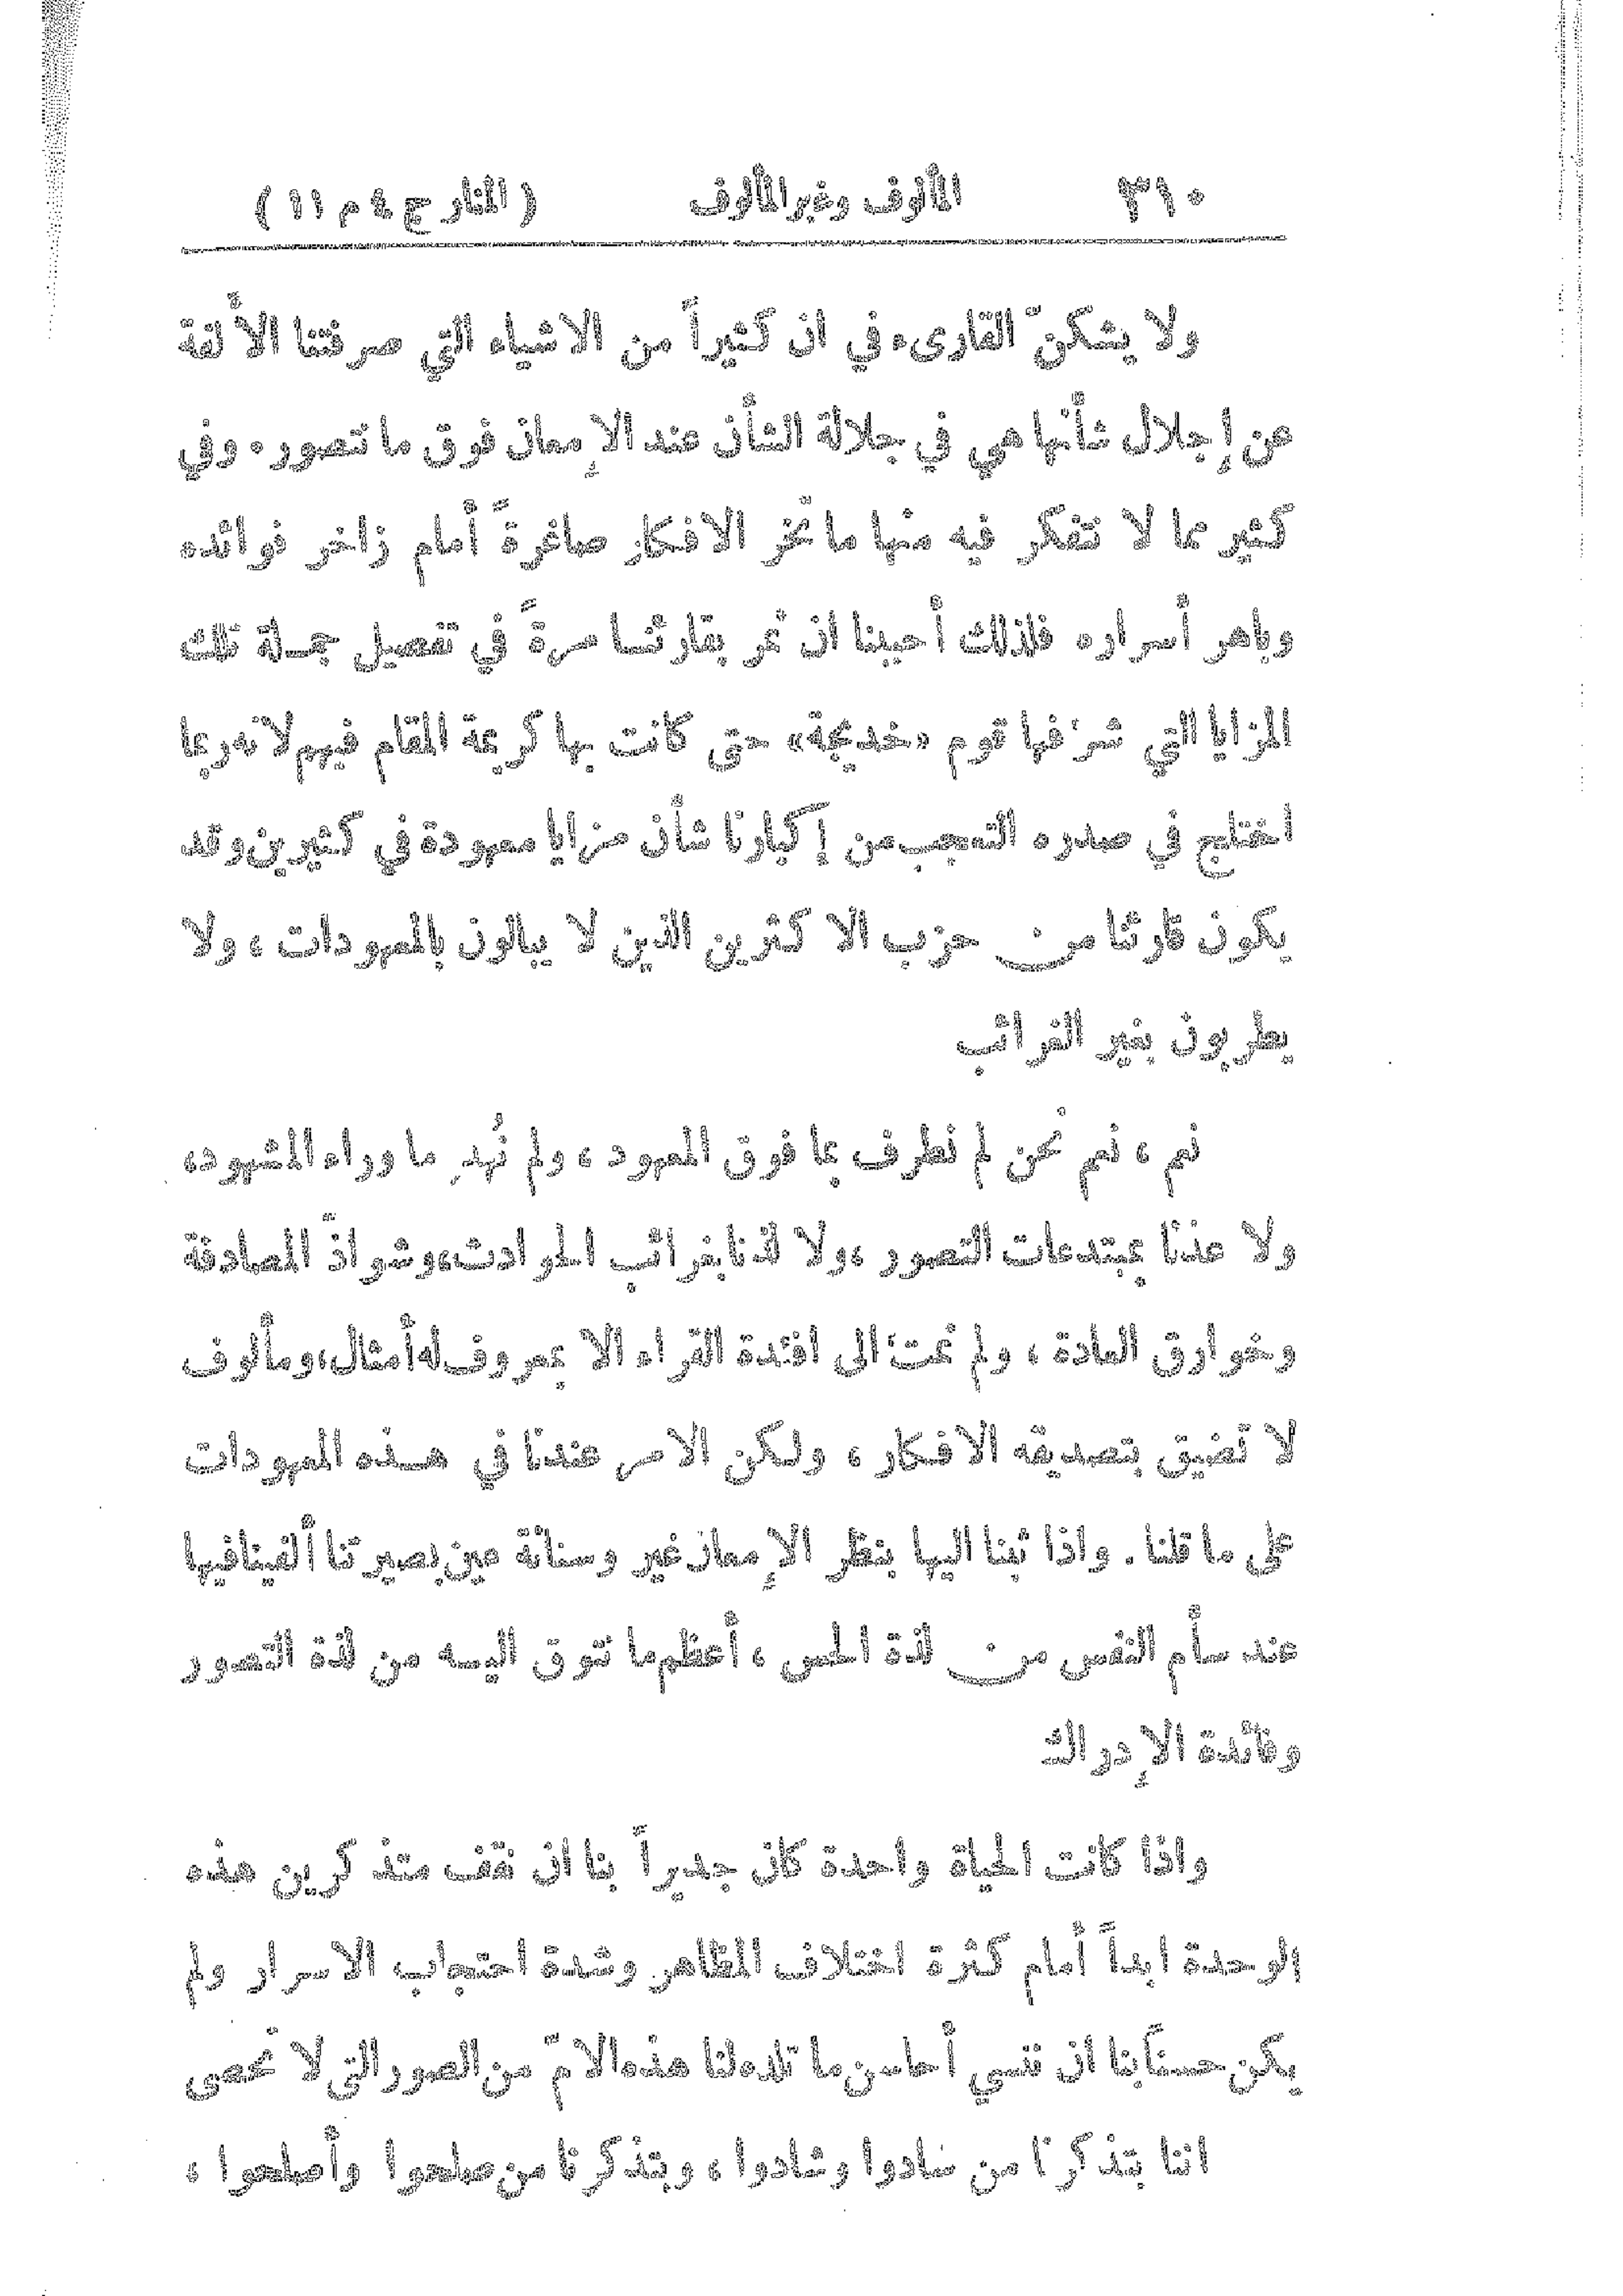 ٣١٠ المألوف وغير المألوف ( المنار ج ٤ م ١١ )
ولا يشكنّ القارىء في ان كثيراً من الاشياء التي صرفتنا الأُلفة
عن إجلال شأنها هي في جلالة الشأن عند الإمعان فوق ما تتصور . وفي
كثير مما لا نتفكر فيه منها ما تخرّ الافكار صاغرةً أمام زاخر فوائده
وباهر أسراره فلذلك أحببنا ان نمر بقارئنا مرةً في تفصيل جملة تلك
المزايا التي شرّفها قوم «خديجة» حتى كانت بها كريمة المقام فيهم لانه ربما
اختلج في صدره التعجب من إكبارنا شأن مزايا معهودة في كثيرين وقد
يكون قارئنا من حزب الاكثرين الذين لا يبالون بالمعهودات ، ولا
يطربون بغير الغرائب
نعم ، نعم نحن لم نطرف بما فوق المعهود ، ولم نُهدِ ما وراء المشهود ،
ولا عذنا بمبتدعات التصور ، ولا لذنا بغرائب الحوادث ، وشواذّ المصادفة
وخوارق العادة ، ولم نمتّ الى افئدة القراء الا بمعروف له أمثال ، ومألوف
لا تضيق بتصديقه الافكار ، ولكن الامر عندنا في هذه المعهودات
على ما قلنا . واذا ثبنا اليها بنظر الإمعان غير وسنانة عين بصيرتنا ألفينا فيها
عند سأم النفس من لذة الحس ، أعظم ما تتوق اليه من لذة التصور
وفائدة الإدراك
واذا كانت الحياة واحدة كان جديراً بنا ان نقف متذكرين هذه
الوحدة ابداً أمام كثرة اختلاف المظاهر وشدة احتجاب الاسرار ولم
يكن حسناً بنا ان ننسي أحاسن ما تلده لنا هذه الامّ من الصور التي لا تحصى
اننا بتذكرنا من سادوا وشادوا ، وبتذكرنا من صلحوا وأصلحوا ،